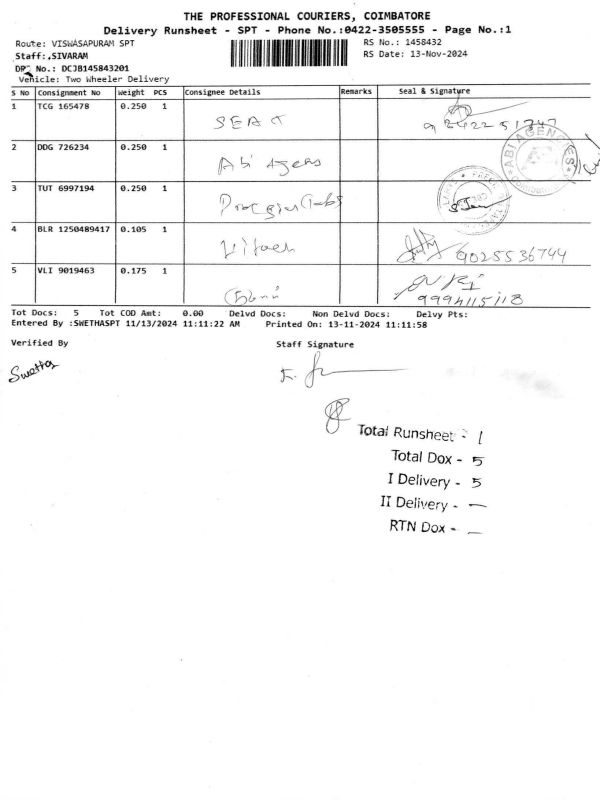 THE PROFESSIONAL COURIERS, COIMBATORE
Delivery Runsheet - SPT - Phone No.:0422-3505555 - Page No.:1
Route: VISWASAPURAM SPT
RS No.: 1458432
Staff:,SIVARAM
RS Date: 13-Nov-2024
DRS No.: DCJB145843201
Vehicle: Two Wheeler Delivery
S No Consignment No Weight PCS Consignee Details Remarks Seal & Signature
1 TCG 165478 0.250 1 SEAT
2 DDG 726234 0.250 1 Abi Agens
ABI AGENCIES
3 TUT 6997194 0.250 1
4 BLR 1250489417 0.105 1 9025536744
5 VLI 9019463 0.175 1
9994115118
Tot Docs: 5 Tot COD Amt: 0.00 Delvd Docs: Non Delvd Docs: Delvy Pts:
Entered By :SWETHASPT 11/13/2024 11:11:22 AM Printed On: 13-11-2024 11:11:58
Verified By
Staff Signature
Swetha
Total Runsheet - 1
Total Dox - 5
I Delivery - 5
II Delivery - —
RTN Dox - —